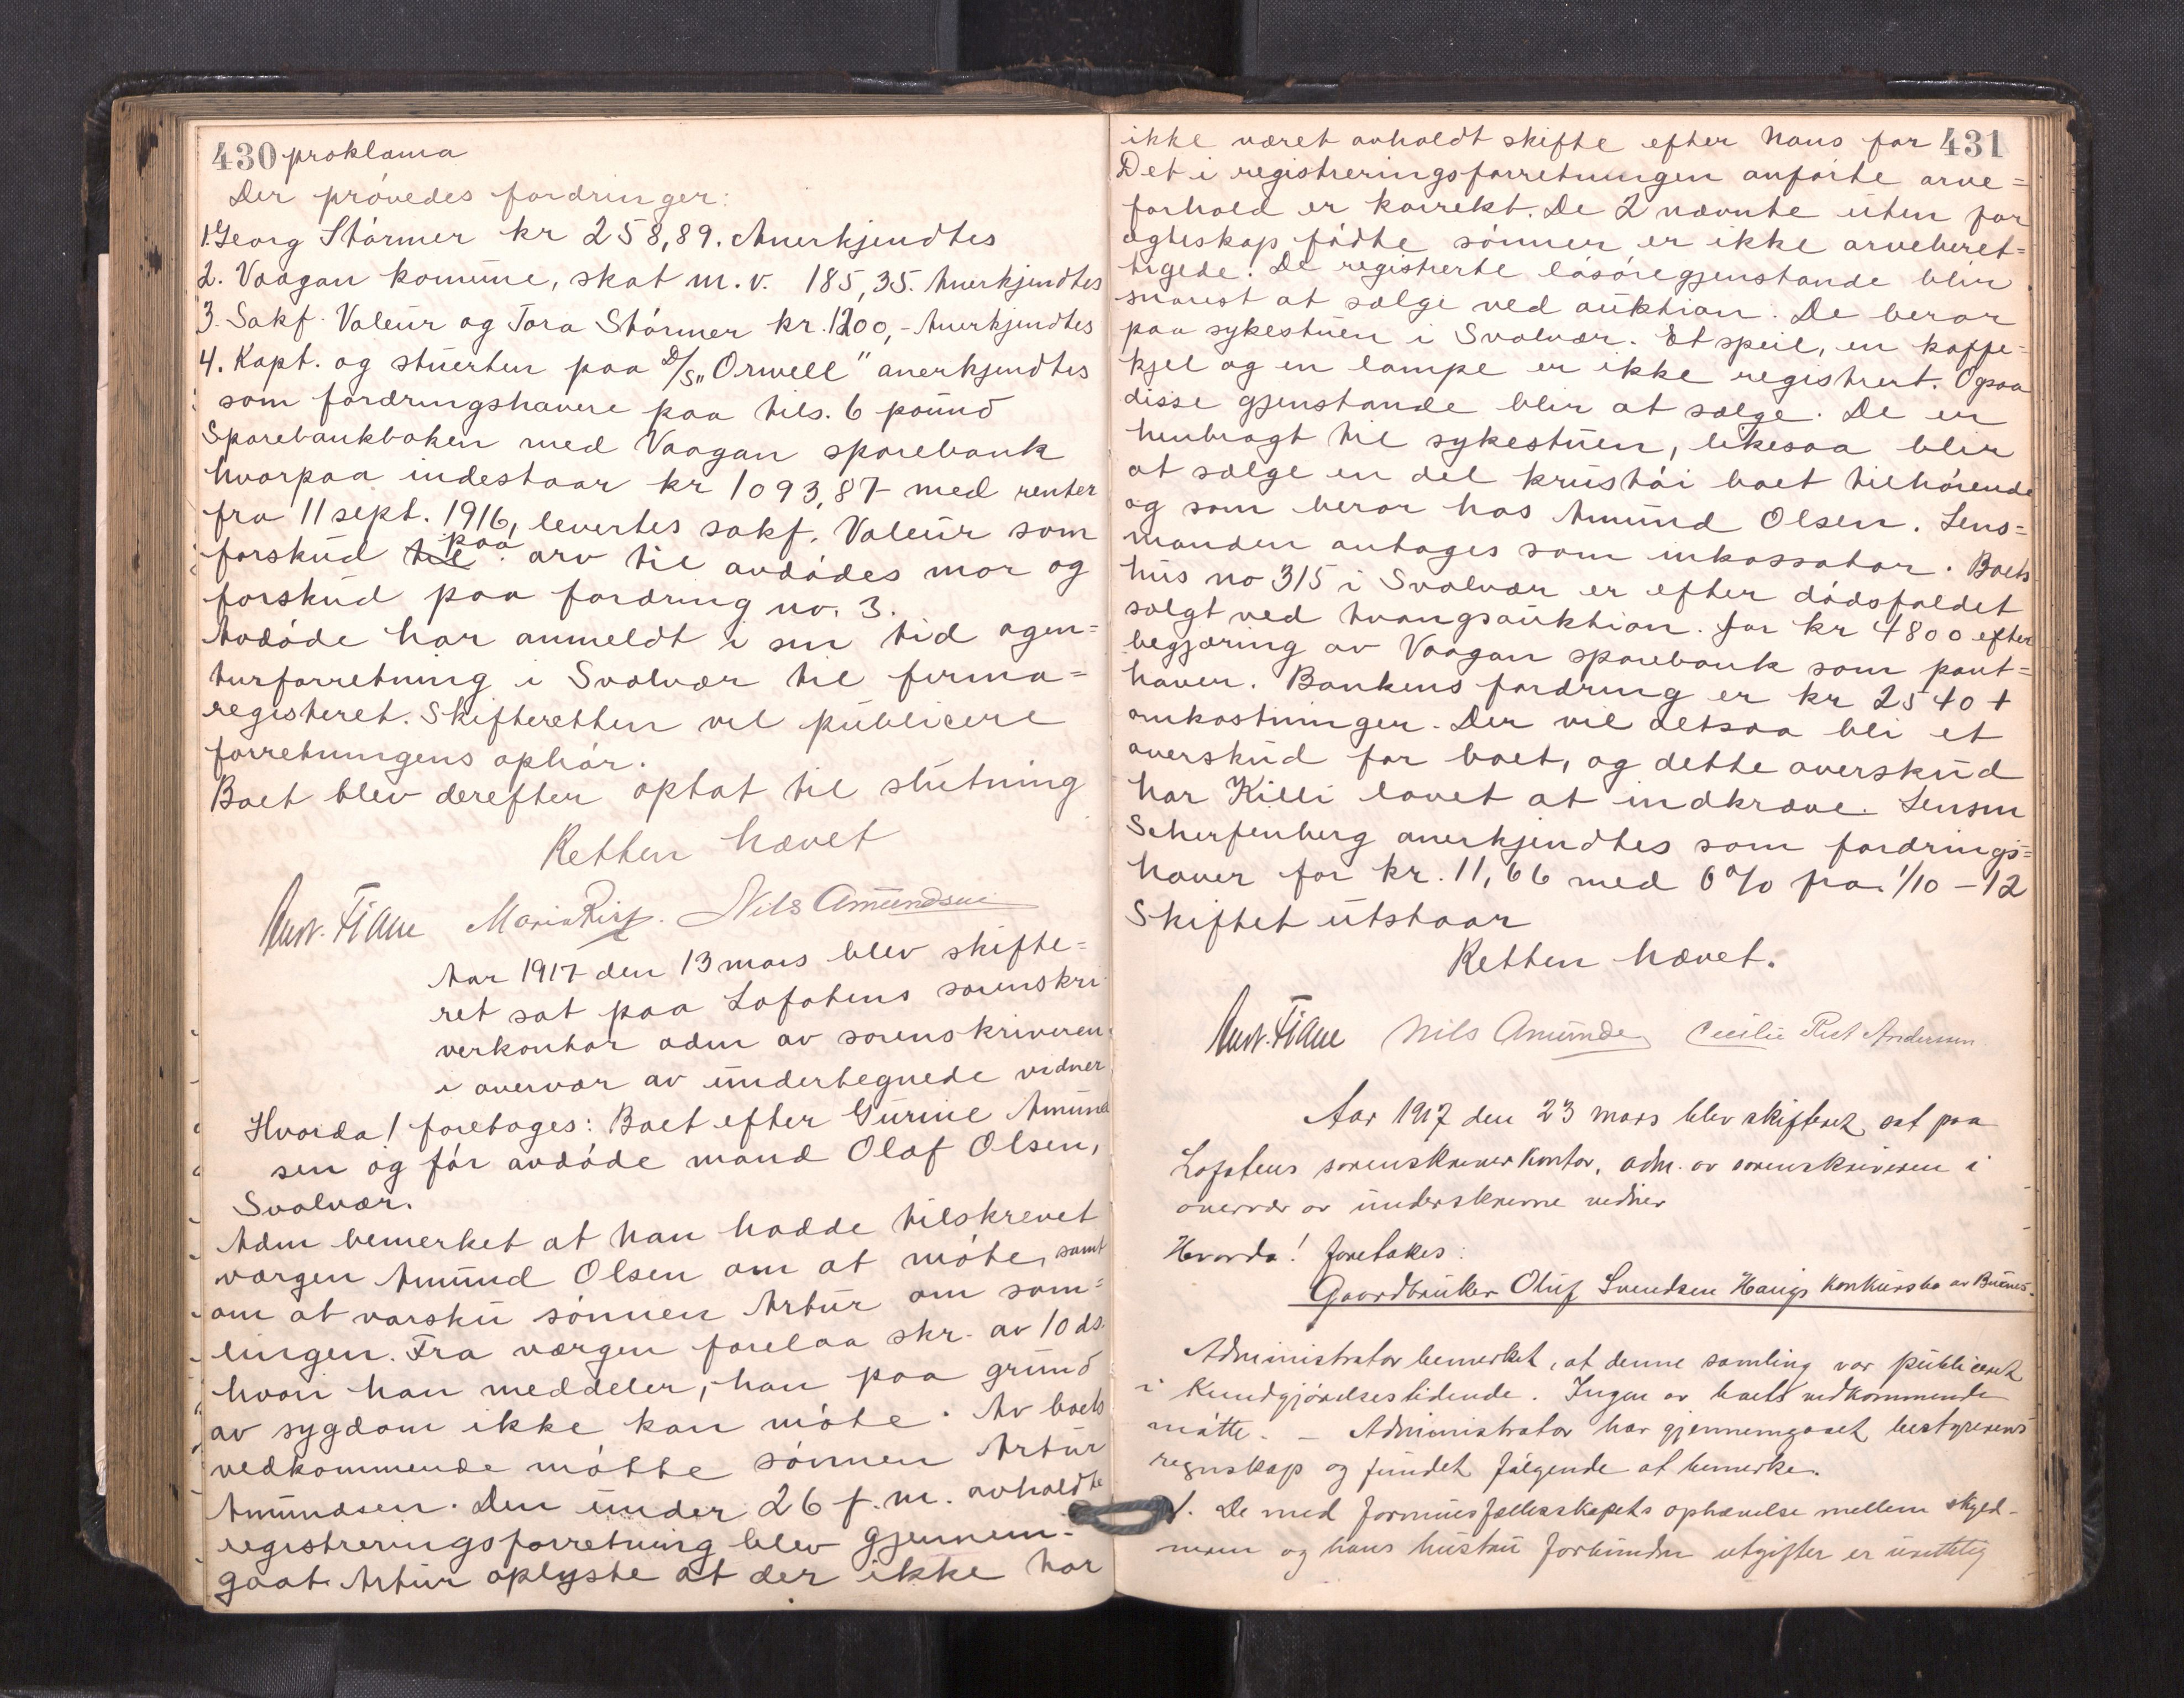 430 proklama
Der prövedes fordringer:
1. Georg Störmer kr 258,89. Anerkjendtes
2. Vaagan komune, skat m.v. 185,35. Anerkjendtes
3. Sakf. Valeur og Tora Störmer kr. 1200,- Anerkjendtes
4. Kapt. og stuerten paa D/S „Orwell" anerkjendtes
som fordringshavere paa tils. 6 pound
Sparebankboken med Vaagan sparebank
hvorpaa indestaar kr 1093,87 med renter
fra 11 sept. 1916, levertes sakf. Valeur som
forskud til paa arv til avdödes mor og
forskud paa fordring no. 3.
Avdöde har anmeldt i sin tid agen=
turforretning i Svolvær til firma=
registeret. Skifteretten vil publicere
forretningens ophör.
Boet blev derefter optat til slutning
Retten hævet
Fiane Maria Nils Amundsen
Aar 1917 den 13 mars blev skifte=
ret sat paa Lofotens sorenskri
verkontor adm av sorenskriveren
i overvær av undertegnede vidner
Hvorda! foretages: Boet efter Gurine Amund
sen og för avdöde mand Olaf Olsen,
Svolvær.
Adm bemerket at han hadde tilskrevet
værgen Amund Olsen om at möte, samt
om at varsku sönnen Artur om sam=
lingen. Fra værgen forelaa skr. av 10 ds.
hvori han meddeler, han paa grund
av sygdom ikke kan möte. Av boets
vedkommende mötte sönnen Artur
Amundsen. Den under 26 f.m. avholdte
registreringsforretning blev gjennem-
gaat. Artur oplyste at der ikke har
ikke været avholdt skifte efter hans far 431
Det i registreringsforretningen anförte arve=
forhold er korrekt. De 2 nævnte uten for
egteskap födte sönner er ikke arveberet=
tigede. De registrerte lösöregjenstande blir
snarest at sælge ved auktion. De beror
paa sykestuen i Svolvær. Et speil, en kaffe=
kjel og en lampe er ikke registrert. Ogsaa
disse gjenstande blir at sælge. De er
henbragt til sykestuen, likesaa blir
at sælge en del krustöi boet tilhörende
og som beror hos Amund Olsen. Lens=
manden antages som inkassator. Boets
hus no 315 i Svolvær er efter dödsfaldet
solgt ved tvangsauktion for kr 4800 efter
begjæring av Vaagan sparebank som pant=
haver. Bankens fordring er kr 2540 +
omkostninger. Der vil altsaa bli et
overskud for boet, og dette overskud
har Killi lovet at indkræve. Lensm
Scherfenberg anerkjendtes som fordrings=
haver for kr. 11,66 med 6% fra 1/10 - 12
Skiftet utstaar
Retten hævet.
Fiane Nils Amunds Cecilie Andersen
Aar 1917 den 23 mars blev skifteret sat paa
Lofotens sorenskriverkontor, adm. av sorenskriveren i
overvær av underskrevne vidner
Hvorda! foretakes:
Gaardbruker Oluf Svendsen Haugs konkursbo av
Administrator bemerket, at denne samling var publiceret
i Kundgjörelsestidende. Ingen av boets vedkommende
mötte. - Administrator har gjennemgaaet bestyrerens
regnskap og fundet fölgende at bemerke.
1. De med formuesfællesskapets ophævelse mellem skyld-
neren og hans hustru forbundne utgifter er